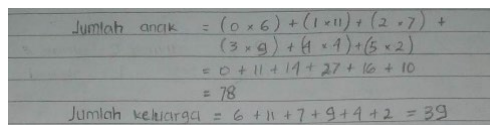 Jumlah anak = (0 × 6) + (1 × 11) + (2 × 7) +
(3 × 9) + (4 × 4) + (5 × 2)
= 0 + 11 + 14 + 27 + 16 + 10
= 78
Jumlah keluarga = 6 + 11 + 7 + 9 + 4 + 2 = 39